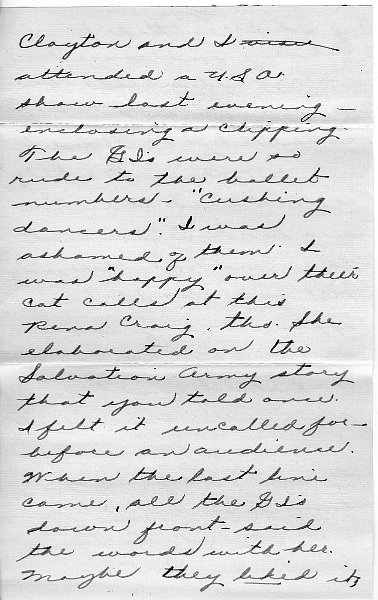 Clayton and I
attended a U.S.O.
show last evening –
enclosing a clipping.
The GIs were so
rude to the ballet
numbers – "Cushing
dancers". I was
ashamed of them. I
was "happy" over their
cat calls at this
Rena Craig, tho. She
elaborated on the
Salvation Army story
that you told once.
I felt it uncalled for –
before an audience.
When the last line
came, all the GIs
down front said
the words with her.
Maybe they liked it,